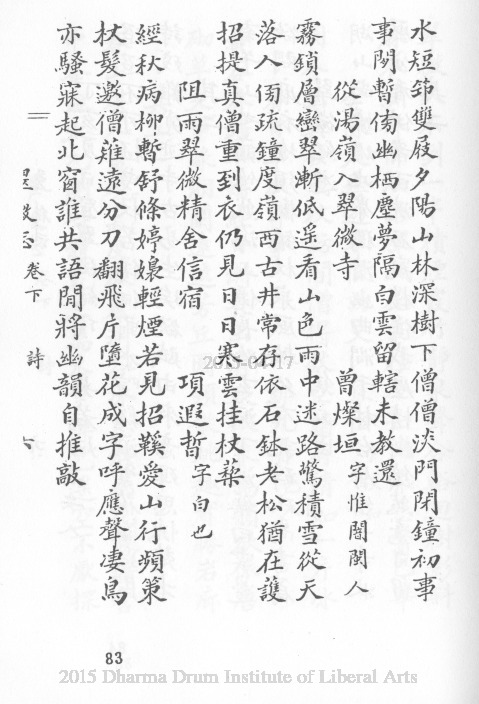 水短笻雙屐夕陽山林深樹下僧僧淡門閉鐘初事
事閒暫傍幽栖塵夢隔白雲留轄未教還
從湯嶺入翠微寺 曾燦垣字惟闇閩人
霧鎖層巒翠漸低遥看山色雨中迷路驚積雪從天
落人傍疏鐘度嶺西古井常存依石鉢老松猶在護
招提真僧重到衣仍見日日寒雲挂杖藜
阻雨翠微精舍信宿 項遐晳字白也
經秋病柳暫舒條婷嬝輕煙若見招鞵愛山行頻策
杖髮邀僧薙遠分刀翻飛片墮花成字呼應聲淒鳥
亦騷寐起北窗誰共語閒將幽韻自推敲
卷下 詩
83
2015 Dharma Drum Institute of Liberal Arts